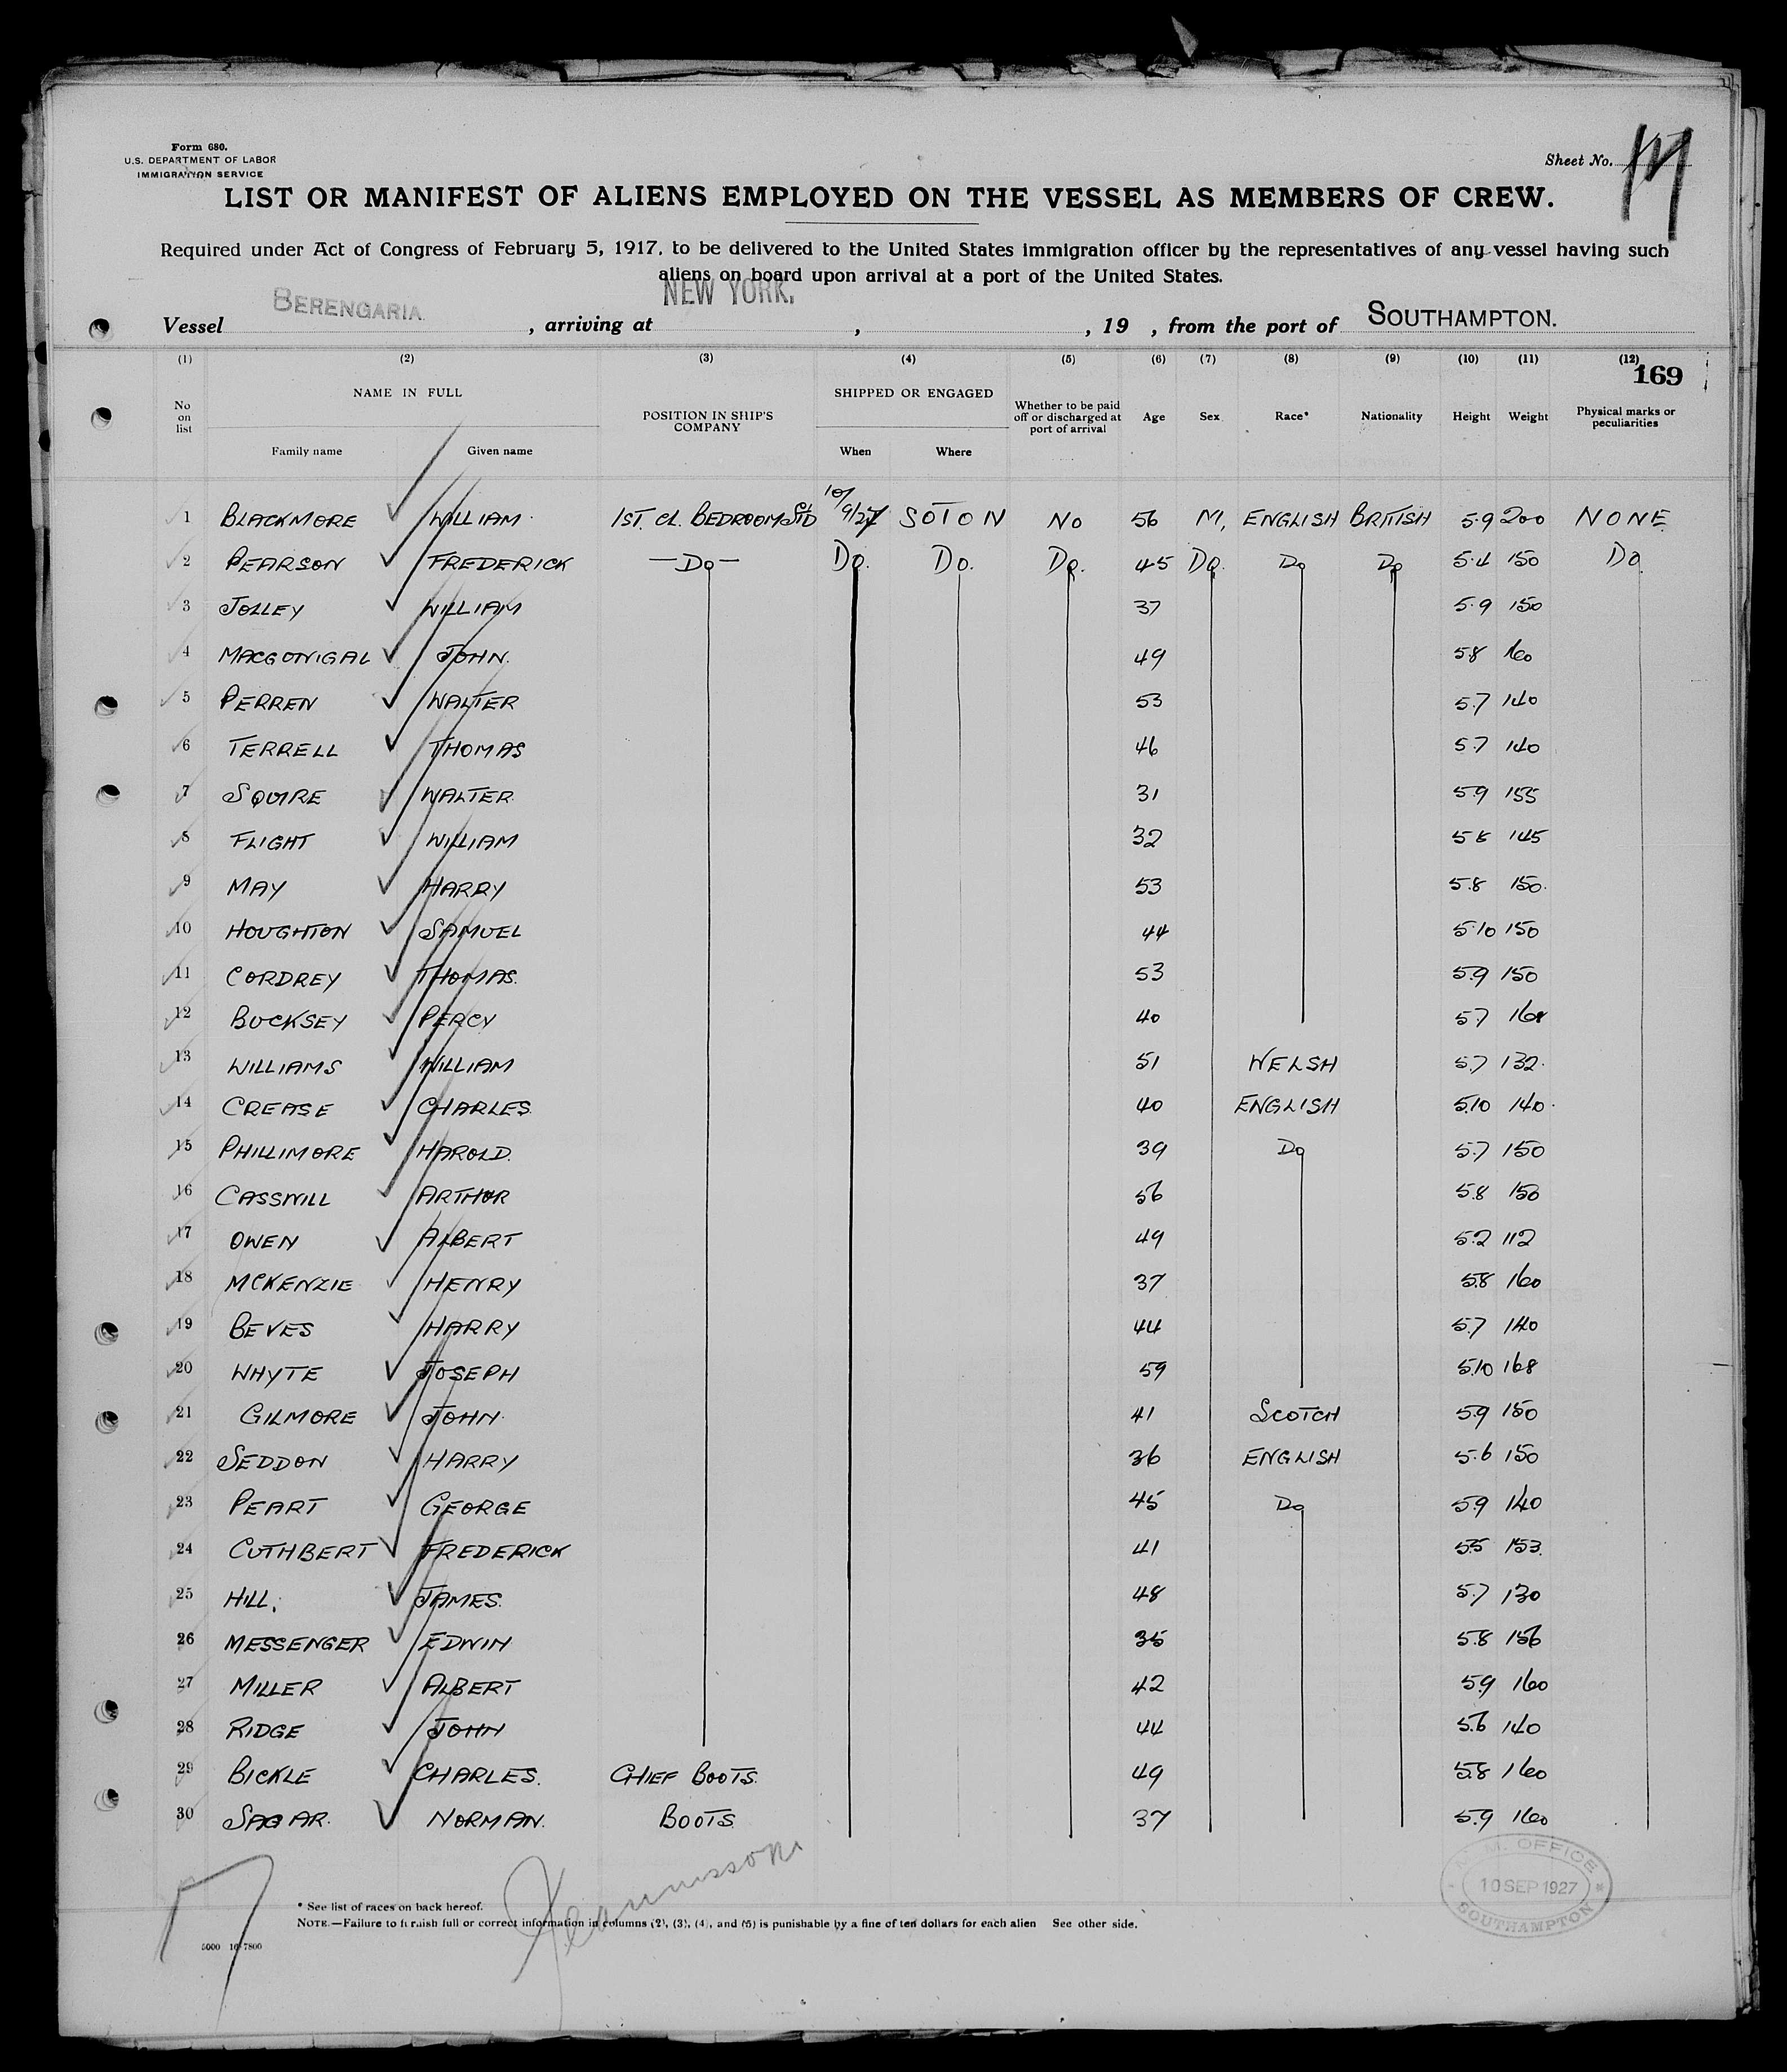 Form 680.
U.S. DEPARTMENT OF LABOR
IMMIGRATION SERVICE
Sheet No.
LIST OR MANIFEST OF ALIENS EMPLOYED ON THE VESSEL AS MEMBERS OF CREW.
Required under Act of Congress of February 5, 1917, to be delivered to the United States immigration officer by the representatives of any vessel having such
aliens on board upon arrival at a port of the United States.
Vessel BERENGARIA , arriving at NEW YORK. , , 19 , from the port of SOUTHAMPTON.
(1) (2) (3) (4) (5) (6) (7) (8) (9) (10) (11) (12)
169
No on list NAME IN FULL Family name Given name POSITION IN SHIP'S COMPANY SHIPPED OR ENGAGED When Where Whether to be paid off or discharged at port of arrival Age Sex Race* Nationality Height Weight Physical marks or peculiarities
1 BLACKMORE WILLIAM 1ST. CL. BEDROOM STD 10/9/27 SOTON NO 56 M, ENGLISH BRITISH 5.9 200 NONE
2 PEARSON FREDERICK —DO— DO. DO. DO. 45 DO. DO DO 5.4 150 DO
3 JOLLEY WILLIAM 37 5.9 150
4 MACGONIGAL JOHN. 49 5.8 160
5 PERREN WALTER 53 5.7 140
6 TERRELL THOMAS 46 5.7 140
7 SQUIRE WALTER 31 5.9 155
8 FLIGHT WILLIAM 32 145
9 MAY HARRY 53 5.8 150.
10 HOUGHTON SAMUEL 44 5.10 150
11 CORDREY THOMAS. 53 5.9 150
12 BUCKSEY PERCY 40 5.7 168
13 WILLIAMS WILLIAM 51 WELSH 5.7 132.
14 CREASE CHARLES. 40 ENGLISH 5.10 140.
15 PHILLIMORE HAROLD. 39 DO 5.7 150
16 CASSWILL ARTHUR 56 5.8 150
17 OWEN ALBERT 49 5.2 112
18 MCKENZIE HENRY 37 5.8 160
19 BEVES HARRY 44 5.7 140
20 WHYTE JOSEPH 59 5.10 168
21 GILMORE JOHN. 41 SCOTCH 5.9 150
22 SEDDON HARRY 36 ENGLISH 5.6 150
23 PEART GEORGE 45 DO 5.9 140
24 CUTHBERT FREDERICK 41 5.5 153.
25 HILL, JAMES. 48 5.7 130
26 MESSENGER EDWIN 35 5.8 156
27 MILLER ALBERT 42 5.9 160
28 RIDGE JOHN 44 5.6 140
29 BICKLE CHARLES. CHIEF BOOTS. 49 5.8 160
30 SAGAR. NORMAN. BOOTS 37 5.9 160
M.M. OFFICE
10 SEP 1927
SOUTHAMPTON
* See list of races on back hereof.
NOTE.—Failure to furnish full or correct information in columns (2), (3), (4), and (5) is punishable by a fine of ten dollars for each alien See other side.
5000 16-7800